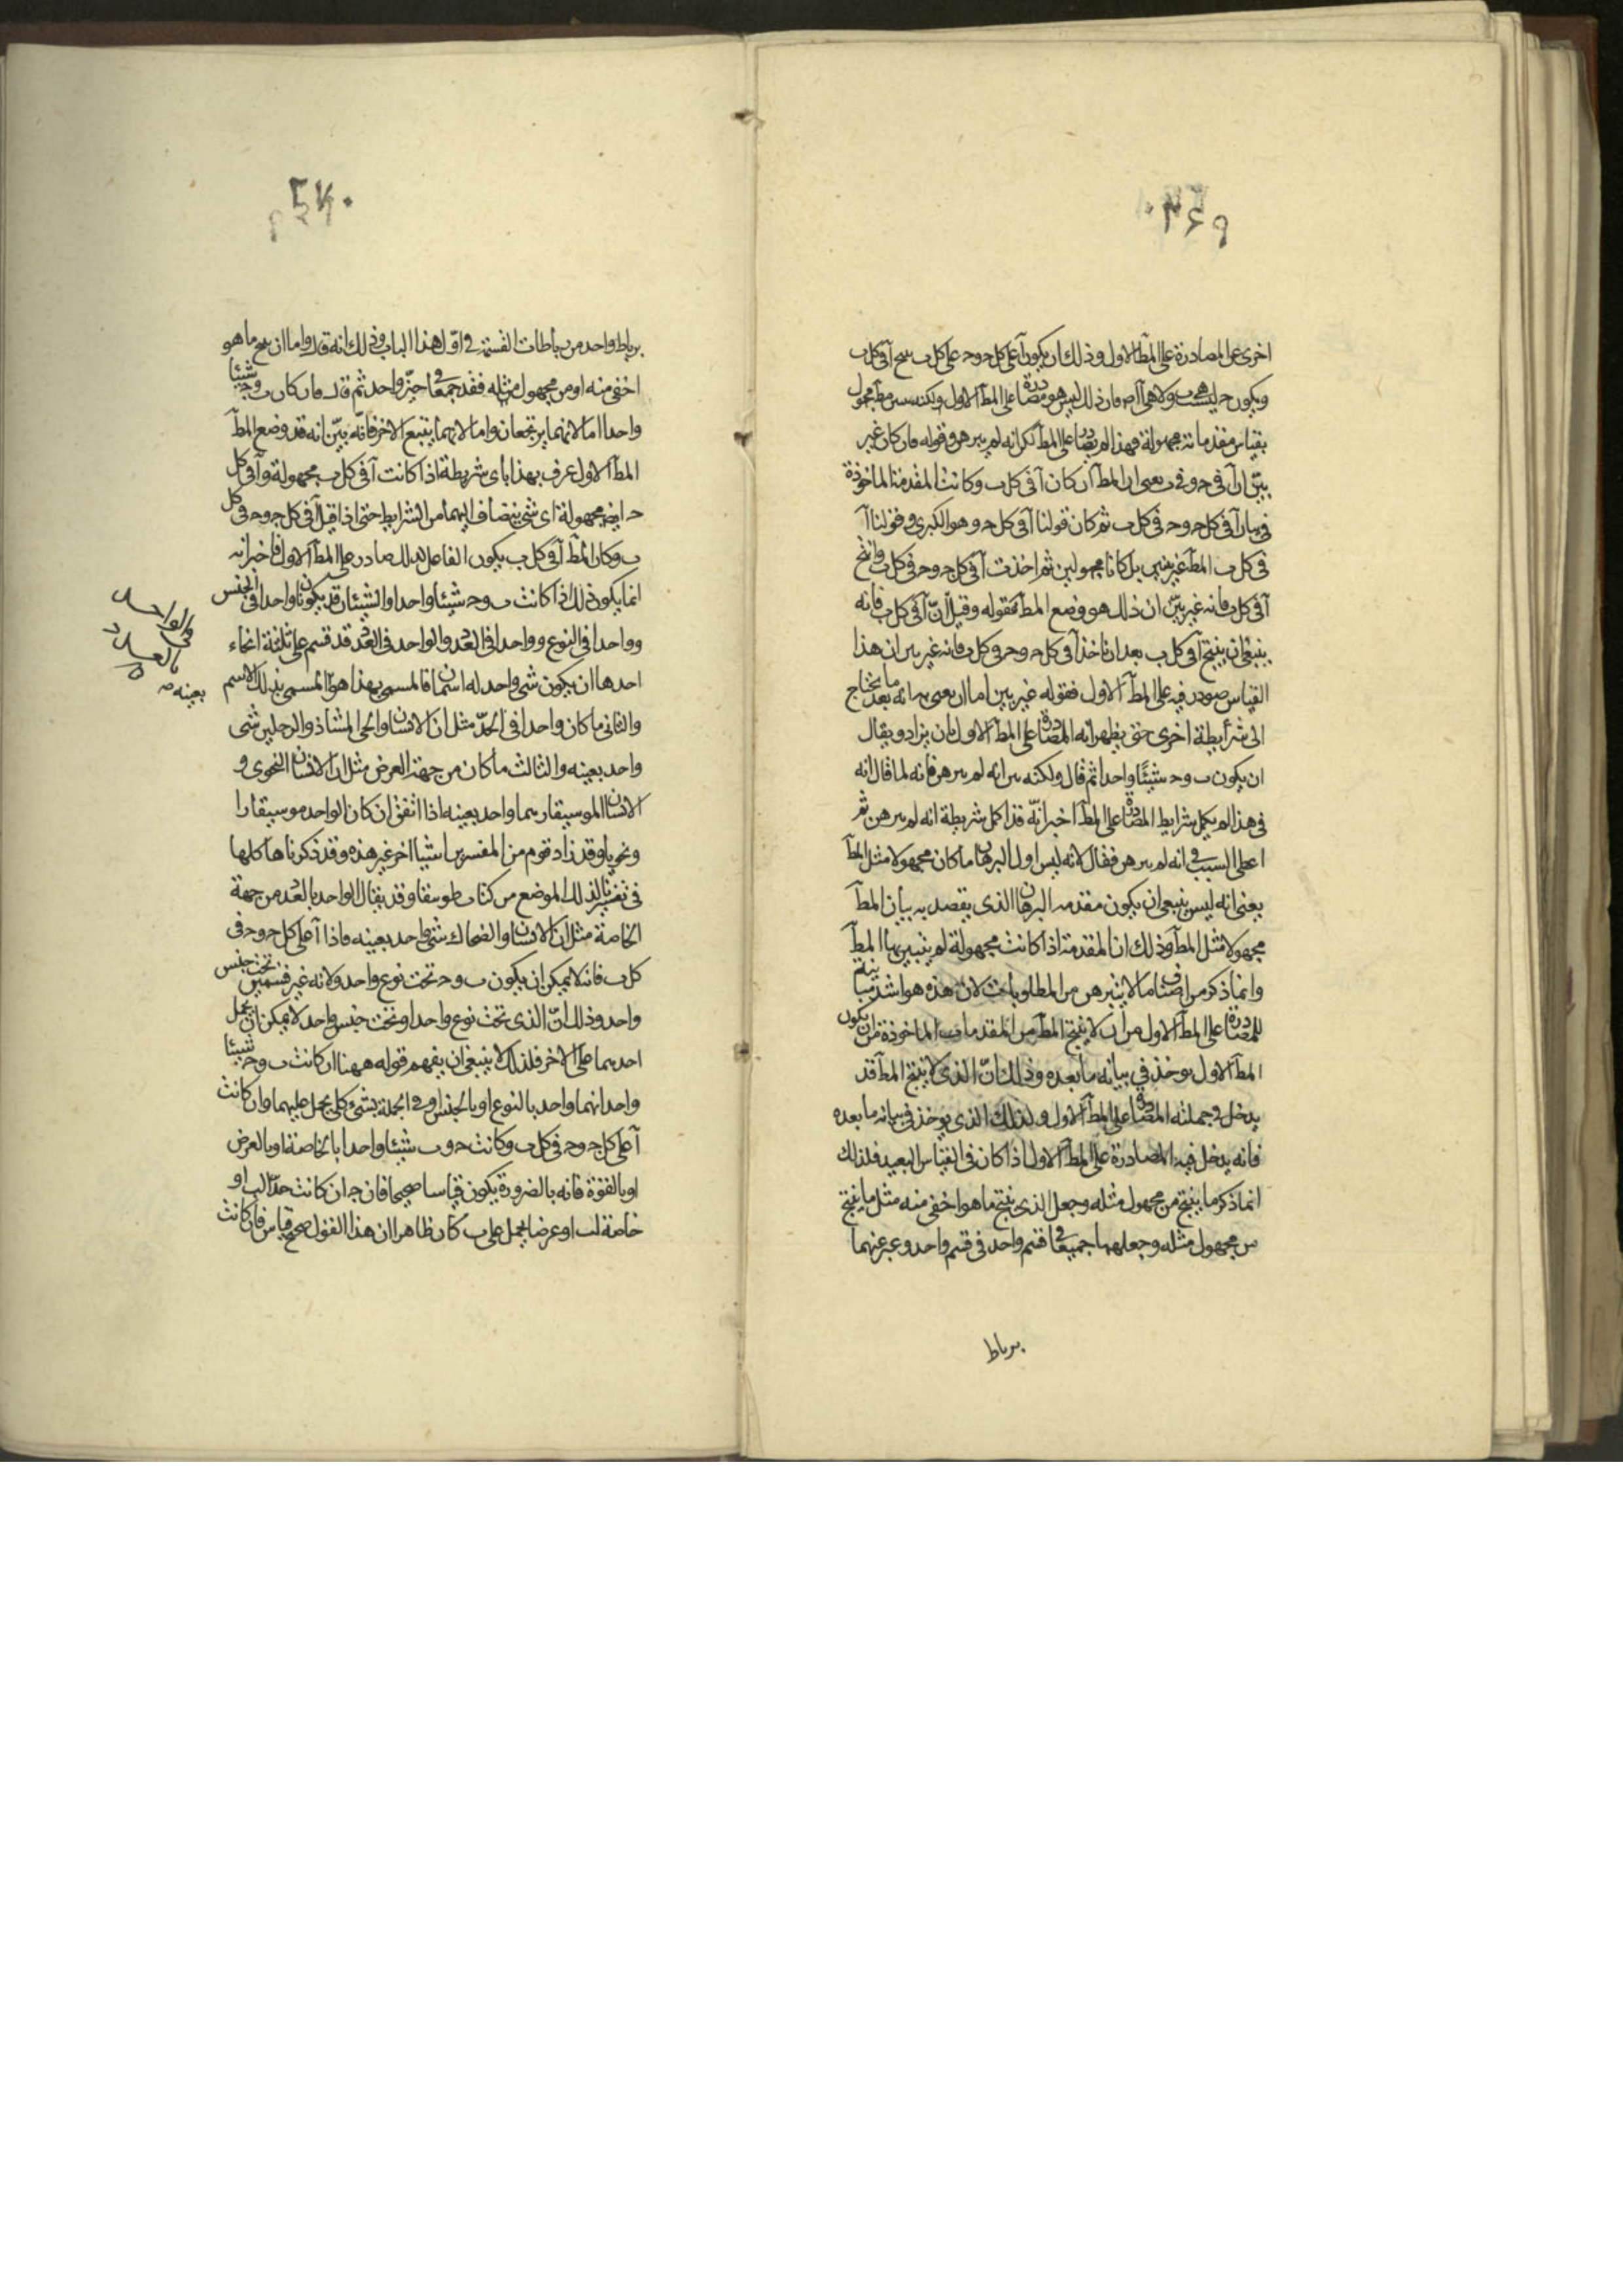 اخرى على المصادرة على المطآ الاول وذلك ان يكون آ على كل حـ وحـ على كل ب ينتج آ فى كل ب
ويكون حـ ليست هى ب ولا هى آ فان ذلك ليس هو مصادرة على المطآ الاول ولكنه
بقياس مقدماته مجهولة فهذا لم يصادر على المطآ لكن انه لم يبرهن وقوله فان كان غير
بيّن ان آ فى حـ وفى ب يعنى ان المطآ ان كان آ فى كل ب وكانت المقدمة الماخوذة
فى بيان آ فى كل حـ وحـ فى كل ب ثم كان قولنا آ فى كل حـ وهو الكبرى وقولنا آ
فى كل ب المطآ غير بينين بل كانا مجهولين ثم اخذت آ فى كل حـ وحـ فى كل ب وانتج
آ فى كل ب فانه غير بيّن ان ذلك هو وضع المطآ فقوله وقيل انّ آ فى كل ب فانه
ينبغى ان ينتج آ فى كل ب بعد ان ناخذ آ فى كل حـ وحـ فى كل ب فانه غير بين ان هذا
القياس صودر فيه على المطآ الاول فقوله غير بين اما ان يعنى به انه بعد ما يحتاج
الى شرايطة اخرى حتى يظهر انه المصادرة على المطآ الاول بان يزاد ويقال
ان يكون ب وحـ شيئًا واحدا ثم قال ولكنه بين انه لم يبرهن فانه لما قال انه
فى هذا لم يكمل شرايط المصادرة على المطآ اخبر انّه قد اكمل شريطة انه لم يبرهن ثم
اعطى السبب فى انه لم يبرهن فقال لانه ليس اول البرهان ما كان مجهولا مثل المطآ
يعنى انه ليس ينبغى ان يكون مقدمه البرهان الذى يقصد به بيان المطآ
مجهولا مثل المطآ وذلك ان المقدمة اذا كانت مجهولة لم يتبين بها المطآ
وانما ذكر من اصناف ما لا يتبرهن من المطلوبات لان هذه هو اشد مباينة
للمصادرة على المطآ الاول من ان لا ينتج المطآ من المقدمات الماخوذة من ان يكون
المطآ الاول يوخذ فى بيانه ما بعده وذلك انّ الذى لا ينتج المطآ قد
يدخل فى جملته المصادرة على المطآ الاول وكذلك الذى يوخذ فى بيانه ما بعده
فانه يدخل فيه المصادرة على المطآ الاول اذا كان فى القياس البعيد فلذلك
انما ذكر ما ينتج من مجهول مثله وجعل الذى ينتج ما هو اخفى منه مثل ما ينتج
من مجهول مثله وجعلهما جميعا فى قسم واحد فى قسم واحد وعبر عنهما
برباط
برباط واحد من رباطات القسمة فى اوّل هذا الباب وذلك انه قال واما ان ينتج ما هو
اخفى منه او من مجهول مثله فقد جمعها فى حيّز واحد ثم قال فان كان ب وحـ شيئا
واحدا اما لانهما يرتجعان واما لانهما يتبع الاخر فانّه بيّن انه قد وضع المطآ
المطآ الاول عرف بهذا باى شريطة اذا كانت آ فى كل ب مجهولة وآ فى كل
حـ ايضا مجهولة اى شى ينضاف اليهما من الشرايط حتى اذا قيل آ فى كل حـ وحـ فى كل
ب وكان المطآ آ فى كل ب يكون الفاعل لذلك صادر على المطآ الاول فاخبر انه
انما يكون ذلك اذا كانت ب وحـ شيئا واحدا والشيئان قد يكونا واحدا فى الجنس
وواحدا فى النوع وواحدا فى العدد والواحد فى العدد قد قسم على ثلثة انحاء
احدها ان يكون شى واحد له اسمان فالمسمى بهذا هو المسمى بذلك الاسم
والثانى ما كان واحدا فى الحدّ مثل ان الانسان والحى المشاء ذو الرجلين شى
واحد بعينه والثالث ما كان من جهة العرض مثل ان الانسان النحوى و
الانسان الموسيقار هما واحد بعينه اذا اتفق ان كان الواحد موسيقارا
ونحويا وقد زاد قوم من المفسرين اشيا اخر غير هذه وقد ذكرناها كلها
فى تفسيرنا لذلك الموضع من كتاب طوبيقا وقد يقال الواحد بالعدد من جهة
الخاصة مثل ان الانسان والضحاك شى واحد بعينه فاذا آ على كل حـ وحـ فى
كل ب فانه لا يمكن ان يكون ب وحـ تحت نوع واحد ولانه غير قسمين تحت جنس
واحد وذلك انّ الذى تحت نوع واحد او تحت جنس واحد لا يمكن ان يحمل
احدهما على الاخر فلذلك لا ينبغى ان يفهم قوله ههنا ان كانت ب وحـ شيئا
واحدا انهما واحد بالنوع او بالجنس او فى الجملة بشىء كلى يحمل عليهما وان كانت
آ على كل حـ وحـ فى كل ب وكانت حـ و ب شيئا واحدا بالخاصة او بالعرض
او بالقوة فانه بالضرورة يكون قياسا صحيحا فان حـ ان كانت حدّا لب او
خاصة لب او عرضا يحمل على ب كان ظاهرا ان هذا القول صحيح قياس فان كانت
والواحد
بالعدد
بعينه صح